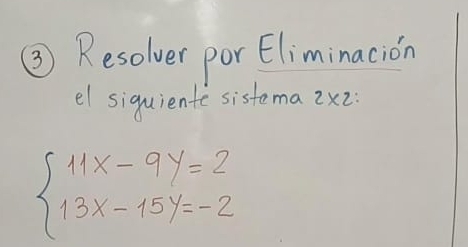 3 Resolver por Eliminación
el siguiente sistema 2x2:
11X - 9Y = 2
13X - 15Y = -2